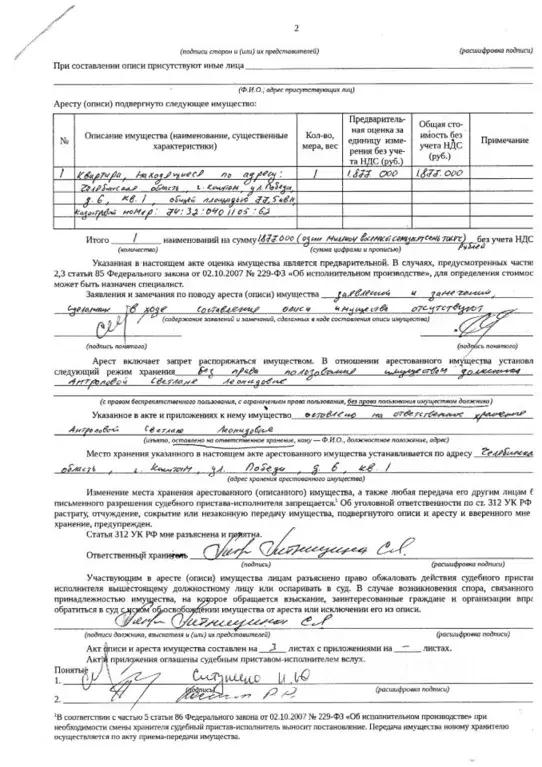 2
(подписи сторон и (или) их представителей) (расшифровка подписи)
При составлении описи присутствуют иные лица
(Ф.И.О.; адрес присутствующих лиц)
Аресту (описи) подвергнуто следующее имущество:
№ Описание имущества (наименование, существенные характеристики) Кол-во, мера, вес Предваритель-ная оценка за единицу изме-рения без уче-та НДС (руб.) Общая сто-имость без учета НДС (руб.) Примечание
1 Квартира, находящиеся по адресу: 1 1877 000 1877.000
Челябинская область, г. , ул. Победы,
д. 6, кв. 1, общей площадью 77,5 кв.м
кадастровый номер: 74:32:0401105:62
Итого 1 наименований на сумму 1877.000 (один миллион восемьсот семьдесят семь тысяч) рублей без учета НДС
(количество) (сумма цифрами и прописью)
Указанная в настоящем акте оценка имущества является предварительной. В случаях, предусмотренных частя
2,3 статьи 85 Федерального закона от 02.10.2007 № 229-ФЗ «Об исполнительном производстве», для определения стоимос
может быть назначен специалист.
Заявления и замечания по поводу ареста (описи) имущества заявлений и замечаний,
сделанных в ходе составления описи имущества отсутствуют
(содержание заявлений и замечаний, сделанных в ходе составления описи имущества)
(подпись понятого) (подпись понятого)
Арест включает запрет распоряжаться имуществом. В отношении арестованного имущества установл
следующий режим хранения без права пользования имуществом должника
Антроповой Светлане Леонидовне
(с правом беспрепятственного пользования, с ограничением права пользования, без права пользования имуществом должника)
Указанное в акте и приложениях к нему имущество оставлено на ответственное хранение
Антроповой Светлане Леонидовне
(изъято, оставлено на ответственное хранение, кому — Ф.И.О., должностное положение, адрес)
Место хранения указанного в настоящем акте арестованного имущества устанавливается по адресу Челябинская
область, г. , ул. Победы, д. 6, кв. 1
(адрес хранения арестованного имущества)
Изменение места хранения арестованного (описанного) имущества, а также любая передача его другим лицам б
письменного разрешения судебного пристава-исполнителя запрещается.¹ Об уголовной ответственности по ст. 312 УК РФ
растрату, отчуждение, сокрытие или незаконную передачу имущества, подвергнутого описи и аресту и вверенного мне
хранение, предупрежден.
Статья 312 УК РФ мне разъяснена и понятна.
Ответственный хранитель
(подпись) (расшифровка подписи)
Участвующим в аресте (описи) имущества лицам разъяснено право обжаловать действия судебного приста
исполнителя вышестоящему должностному лицу или оспорить в суд. В случае возникновения спора, связанного
принадлежностью имущества, на которое обращается взыскание, заинтересованные граждане и организации впра
обратиться в суд с иском об освобождении имущества от ареста или исключении его из описи.
(подписи должника, взыскателя и (или) их представителей) (расшифровка подписи)
Акт описи и ареста имущества составлен на 3 листах с приложениями на — листах.
Акт и приложения оглашены судебным приставом-исполнителем вслух.
Понятые
1.
(подпись) (расшифровка подписи)
2.
¹В соответствии с частью 5 статьи 86 Федерального закона от 02.10.2007 № 229-ФЗ «Об исполнительном производстве» при
необходимости смены хранителя судебный пристав-исполнитель выносит постановление. Передача имущества новому хранителю
осуществляется по акту приема-передачи имущества.